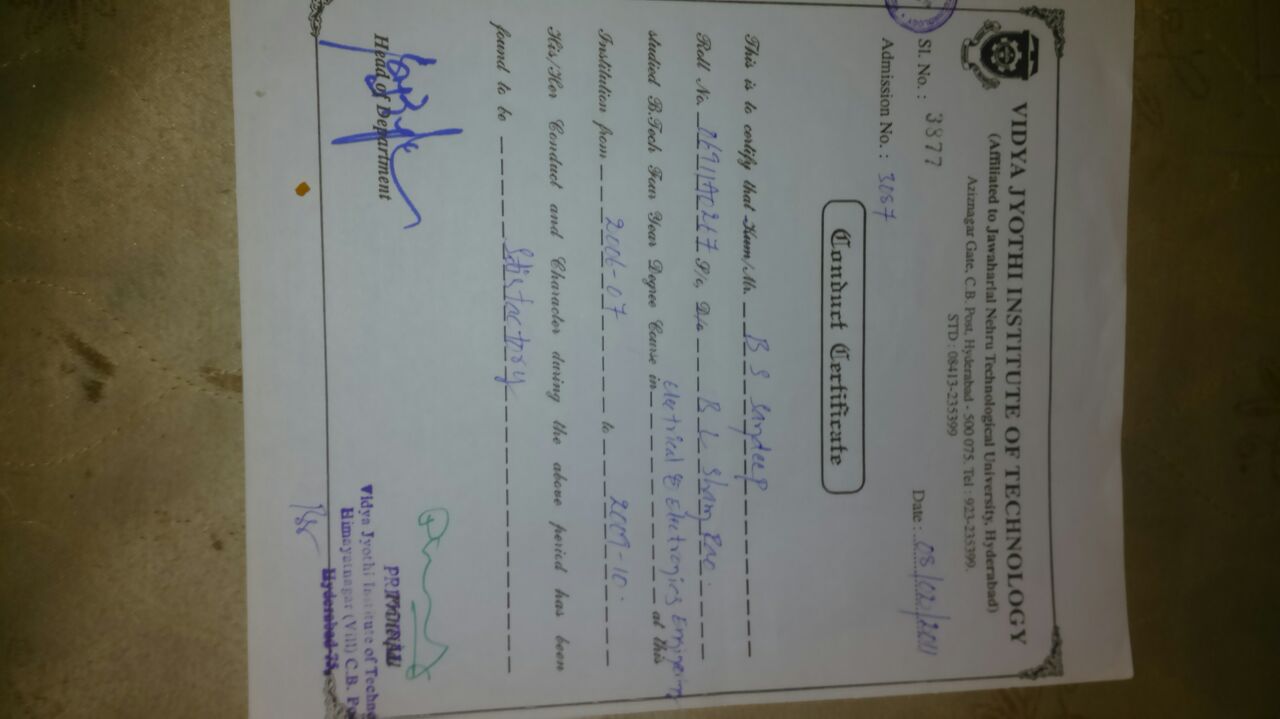 VIDYA JYOTHI INSTITUTE OF TECHNOLOGY
(Affiliated to Jawaharlal Nehru Technological University, Hyderabad)
Aziznagar Gate, C.B. Post, Hyderabad - 500 075. Tel : 923-235399.
STD : 08413-235399
Sl. No. : 3877
Date : 08/02/2011
Admission No. : 3087
Conduct Certificate
This is to certify that Kum/Mr. B S Sandeep
Roll No. S/o, D/o B L Sham Rao.
studied B.Tech Four Year Degree Course in Electrical & Electronics Engineering at this
Institution from 2006-07 to 2009-10.
His/Her Conduct and Character during the above period has been
found to be Satisfactory
Head of Department
PRINCIPAL
Vidya Jyothi Institute of Techno
Himayatnagar (Vill) C.B. Po
Hyderabad-75.